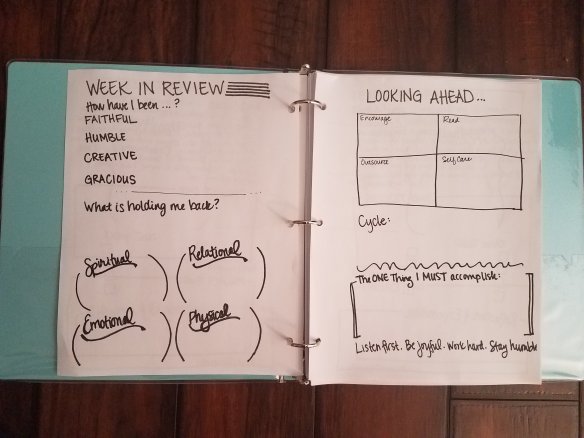 WEEK IN REVIEW
How have I been ...?
FAITHFUL
HUMBLE
CREATIVE
GRACIOUS
What is holding me back?
Spiritual
Relational
Emotional
Physical
LOOKING AHEAD...
Encourage
Read
Outsource
Self Care
Cycle:
The ONE Thing I MUST accomplish:
Listen first. Be joyful. Work hard. Stay humble